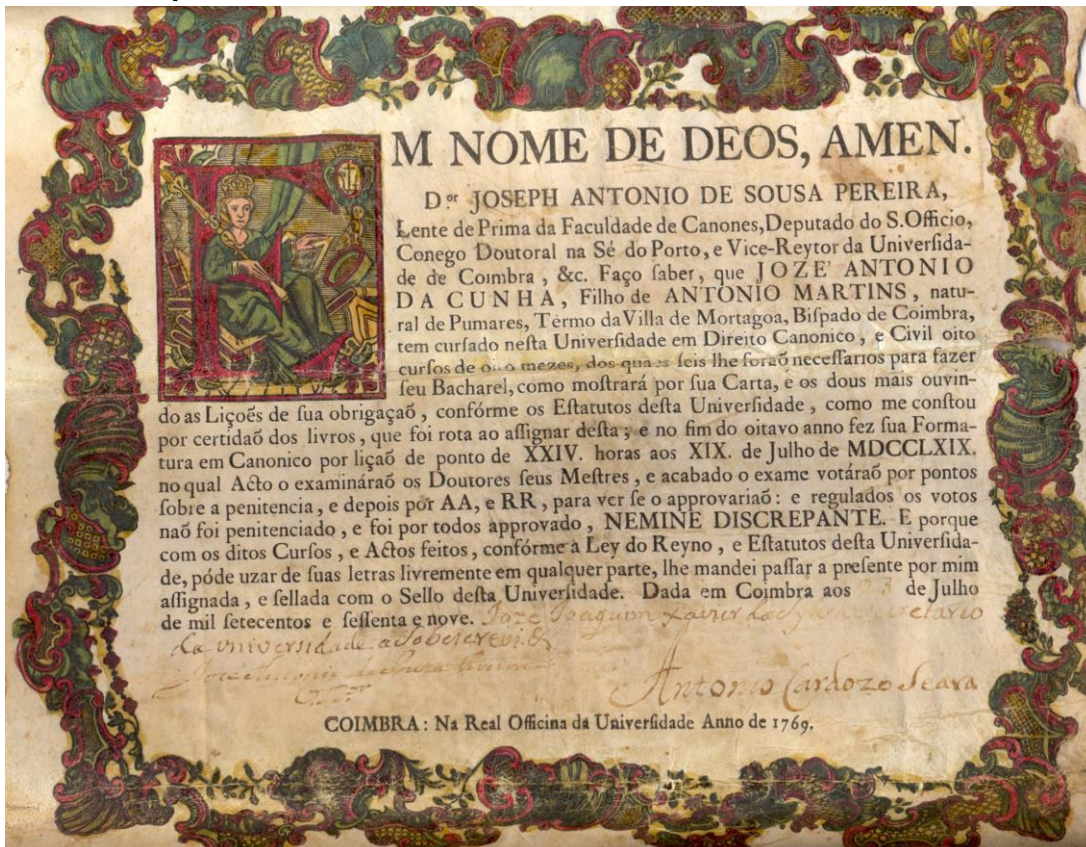 EM NOME DE DEOS, AMEN.
Dor JOSEPH ANTONIO DE SOUSA PEREIRA,
Lente de Prima da Faculdade de Canones, Deputado do S. Officio,
Conego Doutoral na Sé do Porto, e Vice-Reytor da Univerſida-
de de Coimbra, &c. Faço ſaber, que JOZE' ANTONIO
DA CUNHA, Filho de ANTONIO MARTINS, natu-
ral de Pumares, Termo da Villa de Mortagoa, Biſpado de Coimbra,
tem curſado neſta Univerſidade em Direito Canonico, e Civil oito
curſos de oito mezes, dos quaes ſeis lhe foraõ neceſſarios para fazer
ſeu Bacharel, como moſtrará por ſua Carta, e os dous mais ouvin-
do as Liçoẽs de ſua obrigaçaõ, confórme os Eſtatutos deſta Univerſidade, como me conſtou
por certidaõ dos livros, que foi rota ao aſſignar deſta; e no fim do oitavo anno fez ſua Forma-
tura em Canonico por liçaõ de ponto de XXIV. horas aos XIX. de Julho de MDCCLXIX.
no qual Acto o examináraõ os Doutores ſeus Meſtres, e acabado o exame votáraõ por pontos
ſobre a penitencia, e depois por AA, e RR, para ver ſe o approvariaõ: e regulados os votos
naõ foi penitenciado, e foi por todos approvado, NEMINE DISCREPANTE. E porque
com os ditos Curſos, e Actos feitos, confórme à Ley do Reyno, e Eſtatutos deſta Univerſida-
de, póde uzar de ſuas letras livremente em qualquer parte, lhe mandei paſſar a preſente por mim
aſſignada, e ſellada com o Sello deſta Univerſidade. Dada em Coimbra aos 23 de Julho
de mil ſetecentos e ſeſſenta e nove. Joze Joaquim Xavier
da Universidade a Sobescrevi.
Antonio Cardozo Seara
COIMBRA: Na Real Officina da Univerſidade Anno de 1769.